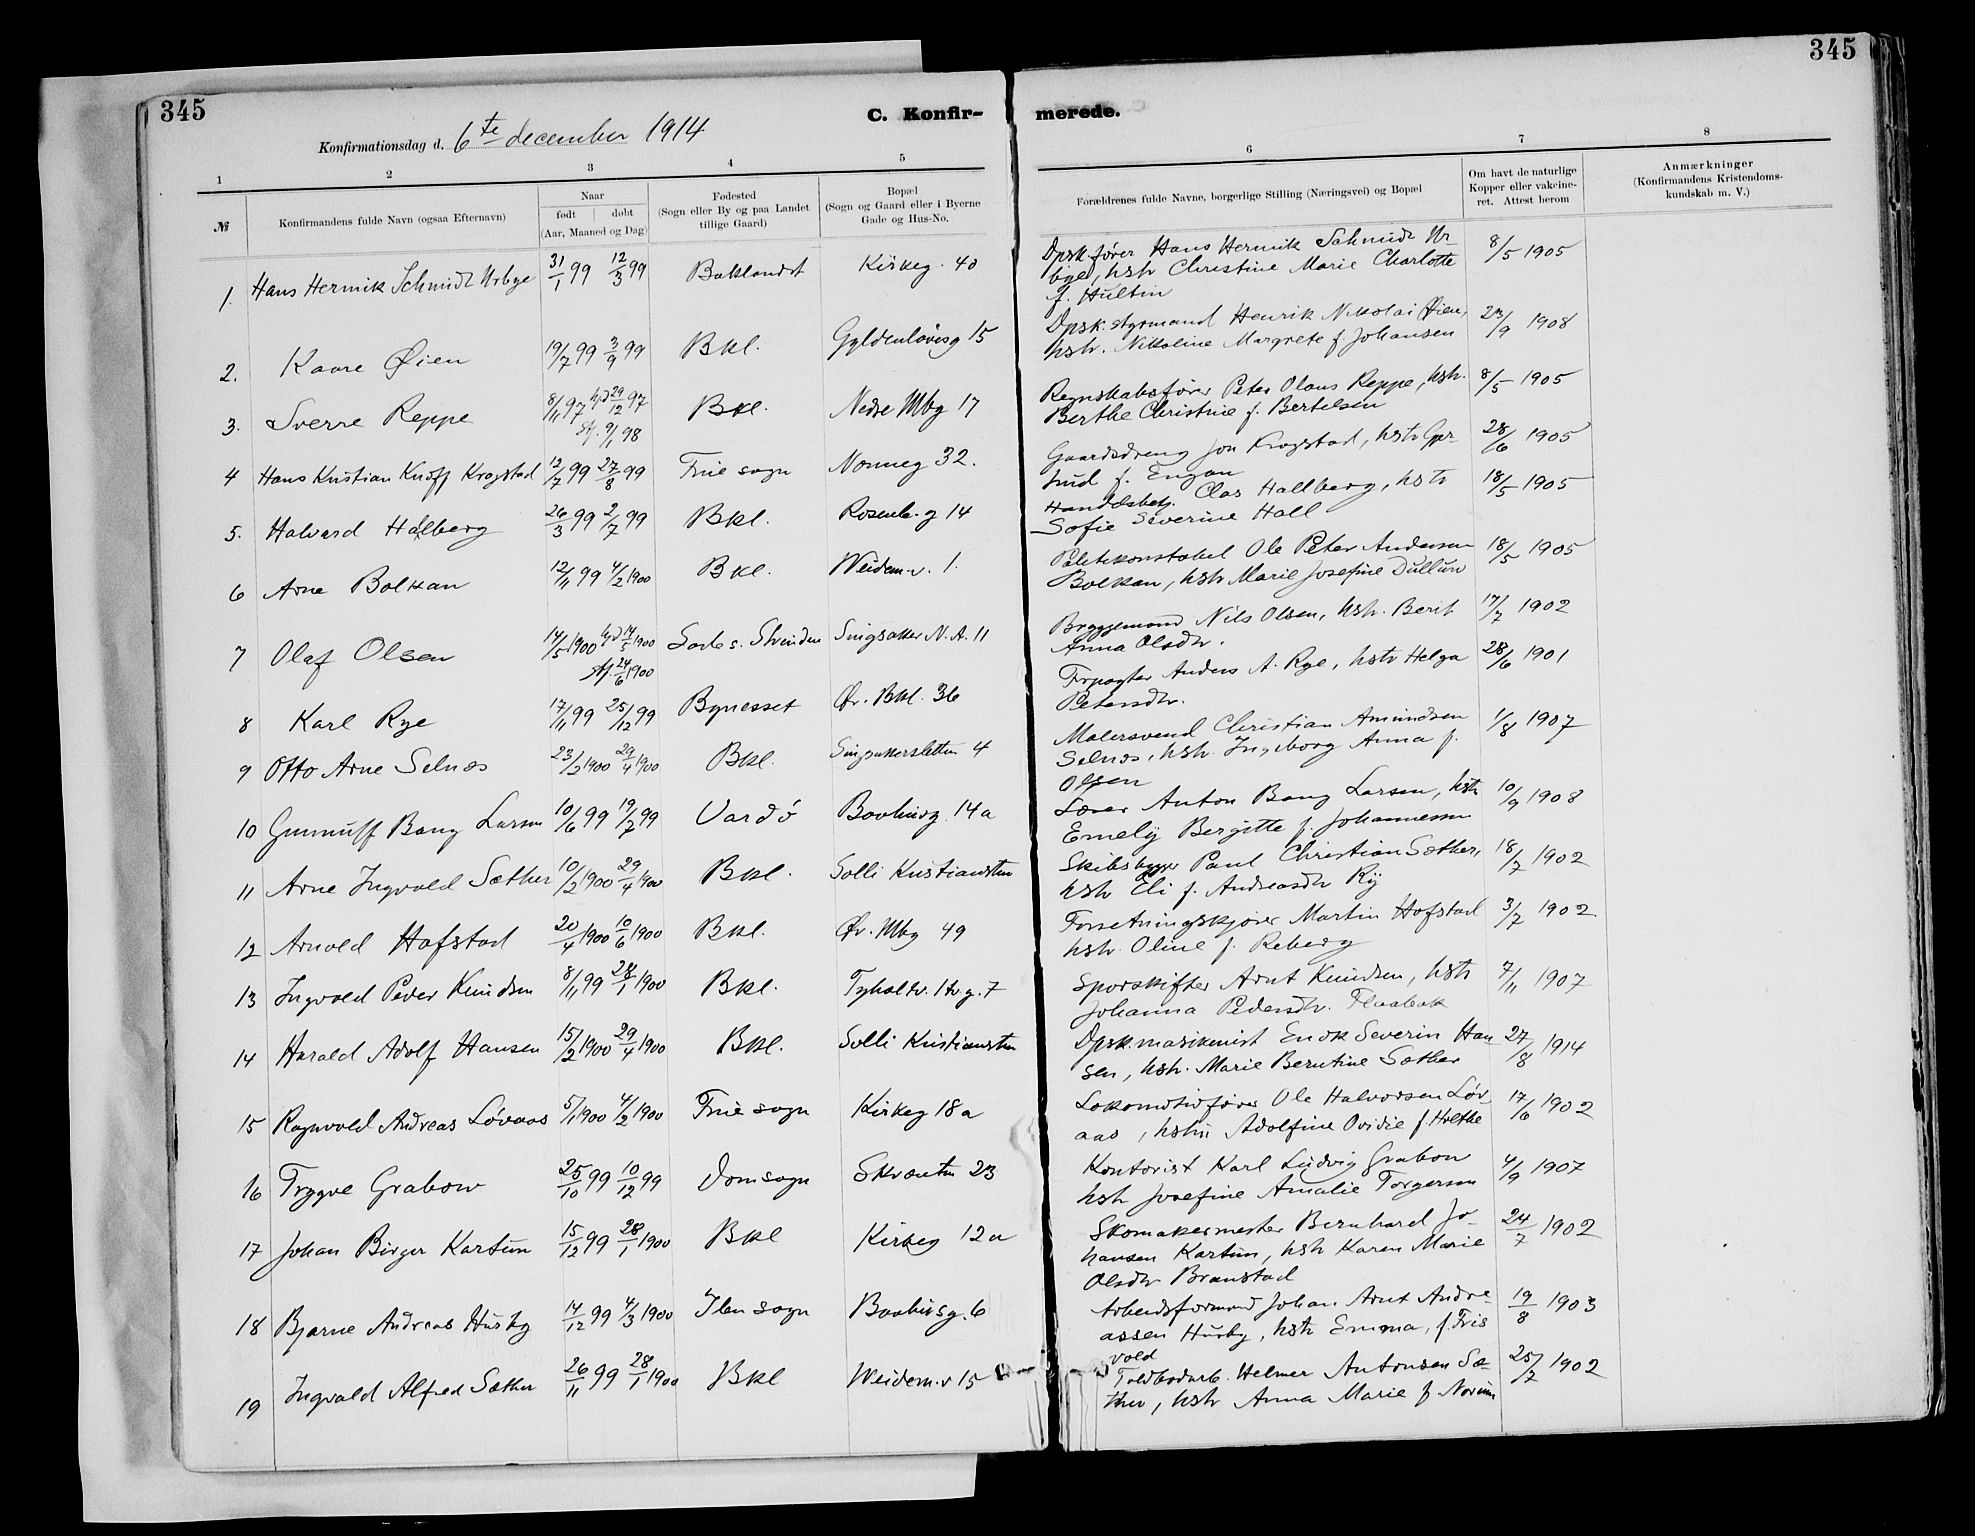 345
345
C. Konfir-
merede.
Konfirmationsdag d. 6te december 1914
1 2 3 4 5 6 7 8
№
Konfirmandens fulde Navn (ogsaa Efternavn)
Naar
født | døbt
(Aar, Maaned og Dag)
Fødested
(Sogn eller By og paa Landet
tillige Gaard)
Bopæl
(Sogn og Gaard eller i Byerne
Gade og Hus-No.
Forældrenes fulde Navne, borgerlige Stilling (Næringsvei) og Bopæl
Om havt de naturlige
Kopper eller vakcine-
ret. Attest herom
Anmærkninger
(Konfirmandens Kristendoms-
kundskab m. V.)
1. Hans Hermik Schmidt Urbye 31/1 99 12/3 99 Baklandet Kirkeg. 40
Dpsk.fører Hans Hermik Schmidt Ur- 8/5 1905
bye, hstr Christine Marie Charlotte
f. Hultin
2. Kaare Øien 19/7 99 3/9 99 Bkl. Gyldenløvesg 15
Dpsk. styrmand Henrik Nikolai Øien, 23/9 1908
hstr. Nikoline Margrete f. Johansen
3. Sverre Reppe 8/11 97 hjd 29/12 97 Bkl. Nedre Mbg 17
stf. 9/1 98
Regnskabsfører Peter Olaus Reppe, hstr. 8/5 1905
Berthe Christine f. Bertelsen
4 Hans Kristian Knoff Krogstad 12/7 99 27/8 99 Frue sogn Nonneg 32.
Gaardsdreng Jon Krogstad, hstr Gjer- 28/6 1905
trud f. Engan
5. Halvard Hallberg 26/3 99 2/7 99 Bkl. Rosenb. g 14
Handelsbetj. Clas Hallberg, hstr 18/5 1905
Sofie Severine Hall
6 Arne Bolkan 12/11 99 4/2 1900 Bkl. Weidem. v. 1.
Politikonstabel Ole Peter Andersen 18/5 1905
Bolkan, hstr Marie Josefine Dullum
7 Olaf Olsen 14/5 1900 hjd 14/5 1900 Sorte s. Strinden Singsaker N. A. 11
stf. 24/6 1900
Bryggemand Nils Olsen, hstr. Berit 17/7 1902
Anna Olsdtr.
8 Karl Rye 17/11 99 25/12 99 Bynesset Øv. Bkl. 36
Forpagter Anders A. Rye, hstr Helga 28/6 1901
Petersdtr.
9 Otto Arne Selnæs 23/2 1900 29/4 1900 Bkl. Singsakersletten 4
Malersvend Christian Amundsen 1/8 1907
Selnæs, hstr. Ingeborg Anna f.
Olsen
10 Gunnulf Bang Larsen 10/6 99 19/7 99 Vardö Bovhusg. 14a
Lærer Anton Bang Larsen, hstr 10/9 1908
Emely Bergitte f. Johannessen
11 Arne Ingvald Sæther 10/2 1900 29/4 1900 Bkl. Solli Kristiansten
Skibsbygger Paul Christian Sæther, 18/7 1902
hstr Eli f. Andreasdtr Rÿ
12 Arnold Hofstad 20/4 1900 10/6 1900 Bkl. Øv. Mbg 49
Forretningskjører Martin Hofstad 3/7 1902
hstr. Oline f. Reberg
13 Ingvald Peder Knudsen 8/11 99 28/1 1900 Bkl. Tyholtv. 1 tv. g. 7
Sporskifter Arnt Knudsen, hstr 7/11 1907
Johanna Pedersdtr. Flaabak
14 Harald Adolf Hansen 15/2 1900 29/4 1900 Bkl. Solli Kristiansten
Dpsk.maskinist Enok Severin Han 27/8 1914
sen, hstr. Marie Berntine Sæther
15 Ragnvald Andreas Løvaas 5/1 1900 4/2 1900 Frue sogn Kirkeg 18a
Lokomotivfører Ole Halvorsen Løv 17/6 1902
aas, hstr Adolfine Ovidie f. Holthe
16 Trygve Grabow 25/10 99 10/12 99 Domsogn Skrænten 23
Kontorist Karl Ludvig Grabow 4/9 1907
hstr Josefine Amalie Torgersen
17 Johan Birger Kartum 15/12 99 28/1 1900 Bkl Kirkeg 12a
Skomakermester Bernhard Jo- 24/7 1902
hansen Kartum, hstr Karen Marie
Olsdtr Branstad
18 Bjarne Andreas Husby 14/12 99 4/3 1900 Ilen sogn Bovhusg. 6
Arbeidsformand Johan Arnt Andre- 19/8 1903
assen Husby, hstr Emma, f. Fris
vold
19 Ingvald Alfred Sæther 26/11 99 28/1 1900 Bkl Weidem. v 15
Toldbodarb. Helmer Antonsen Sæ- 25/7 1902
ther, hstr Anna Marie f Norum